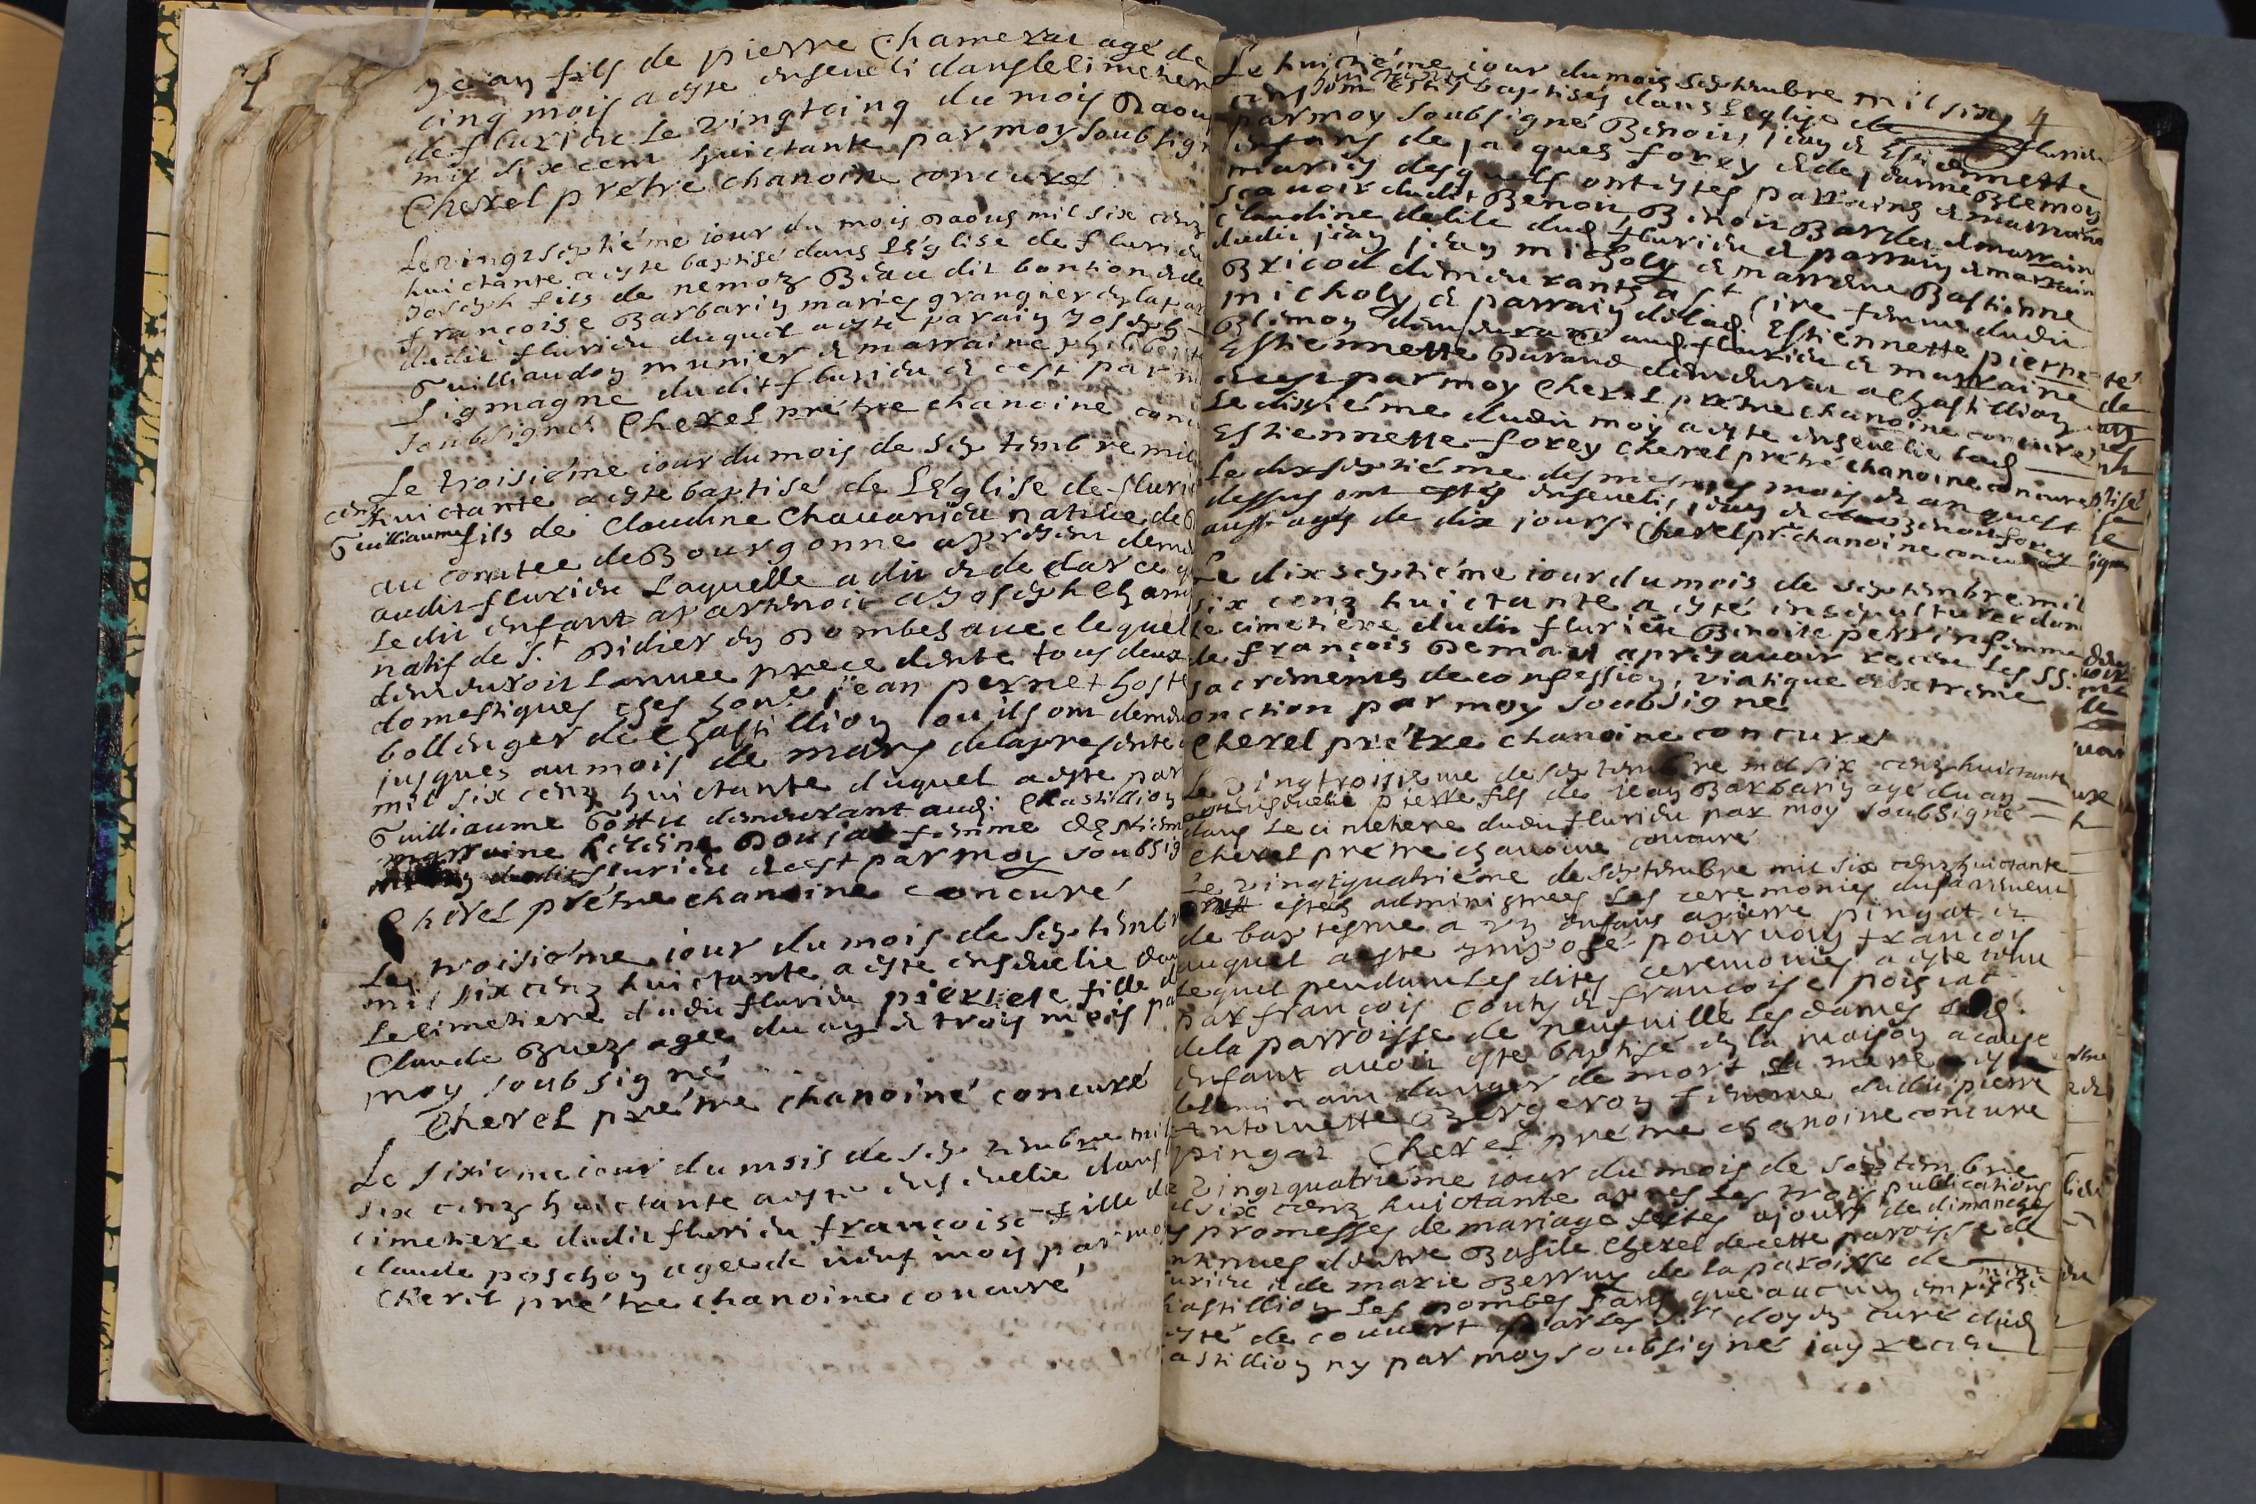 Jean fils de pierre Chamerat agé de
cinq mois a esté enseveli dans le cimetier
de flurieu le vingtcinq du mois Daou
mil six cent huictante par moy soubsign
Cherel prétre chanoine concuré
Le vingt septiéme iour du mois Daoust mil six cenz
huictante a esté baptisé dans l'église de fluri
Joseph fils de nemoz dit bontion & de
françoise Barbarin mariés grangier en la par
dudit flurieu duquel a esté parain Joseph
Guilliaudon munier & marraine philiberte
Ligmagne dudit flurieu & cest par m
soubsigné Cherel prétre chanoine conc
Le troisiéme iour du mois de septembre mil
cenz huictante a esté baptisé de l'église de fluri
Guilliaume fils de Claudine Chauanieu native de
au comtee de Bourgonne apresent demeu
audit flurieu Laquelle a dit & declaré q
Ledit enfant apartenoit a Joseph
natif de St Didier en Dombes avec lequel
demeuroit l'annee precedente tous deux
domestiques ches hon. jean pernet hoste
bollenger de Chastillion ou ils ont demeu
jusques au mois de mars de la presente
mil six cenz huictante duquel a esté par
Guilliaume demeurant aud. Chastillion
marraine femme
dudit flurieu & cest par moy soubsig
Cherel prétre chanoine concuré
Le troisiéme iour du mois de septemb
mil six cenz huictante a esté ensevelie dan
Le cimetiere dudit flurieu pierrete fille d
Claude Buez agee du an & trois mois pa
moy soubsigné
Cherel prétre chanoine concuré
Le sixieme iour du mois de septembre mil
six cenz huictante a esté ensevelie dans
cimetiere dudit flurieu françoise fille de
claude paschon agee de neuf mois par moy
Cherel prétre chanoine concuré
4
Le huictiéme iour du mois septembre mil six
cenz huictante ont estés baptisés dans l'eglise de flurieu
par moy soubsigné Benoit, jean & Estiennette
enfans de jacques forey & de jeanne Blemoy
mariés desquels ont estés parrains & marraines
scavoir dudit Benoit, Benoit & marrain
Claudine delile dud. flurieu & parrain & marrain
dudit jean jean micholy & marraine Bastienne
Bricod demeurants a St Cire femme dudit
micholy & parrain de lad. Estiennette pierre
Blemoy demeurant aud. flurieu & marraine
Estiennette Durand demeurant a Chastillion
& cest par moy Cherel prétre chanoine concuré
Le dixiéme dudit moy a esté ensevelie lad.
Estiennette forey Cherel prétre chanoine concuré
Le dix septiéme des mesmes mois & an que
dessus ont estés ensevelis jean & Benoit forey
aussi agés de dix jours. Cherel pr. chanoine concuré
Le dix septiéme iour du mois de septembre mil
six cenz huictante a esté ensepulturee dans
le cimetiere dudit flurieu Benoite perrin femme
de françois apres avoir receu les SS.
sacrements de confession, viatique & extreme
onction par moy soubsigné
Cherel prétre chanoine concuré
Le vingtroisieme de septembre mil six cenz huictante
a esté ensevelie pierre fils de jean Barbarin agé du an
dans le cimetiere dudit flurieu par moy soubsigné
Cherel prétre chanoine concuré
Le vingtquatriéme de septembre mil six cenz huictante
estés administrees les ceremonies du sacrement
de baptesme a un enfans apierre pingat &
auquel a esté imposé pour nom francois
Lequel pendant Les dites ceremonies a esté tenu
par françois Couty & francoise poisiat
de la parroisse de neufville les dames led.
enfant avoit esté baptisé en la maison a cause
de l'eminant danger de mort sa mere
antoinette Bergeron femme dudit pierre
pingat Cherel prétre chanoine concuré
Vingtquatriéme iour du mois de septembre
il six cenz huictante apres les trois publications
s promesses de mariage feites a jours de dimanches
entre Basile Cherel de cette paroisse de
urieu & de marie de la paroisse de
hastillion Les dombes sans que aucun empeche
esté decouvert par les doyen curé dud.
astillion ny par moy soubsigné iay receu